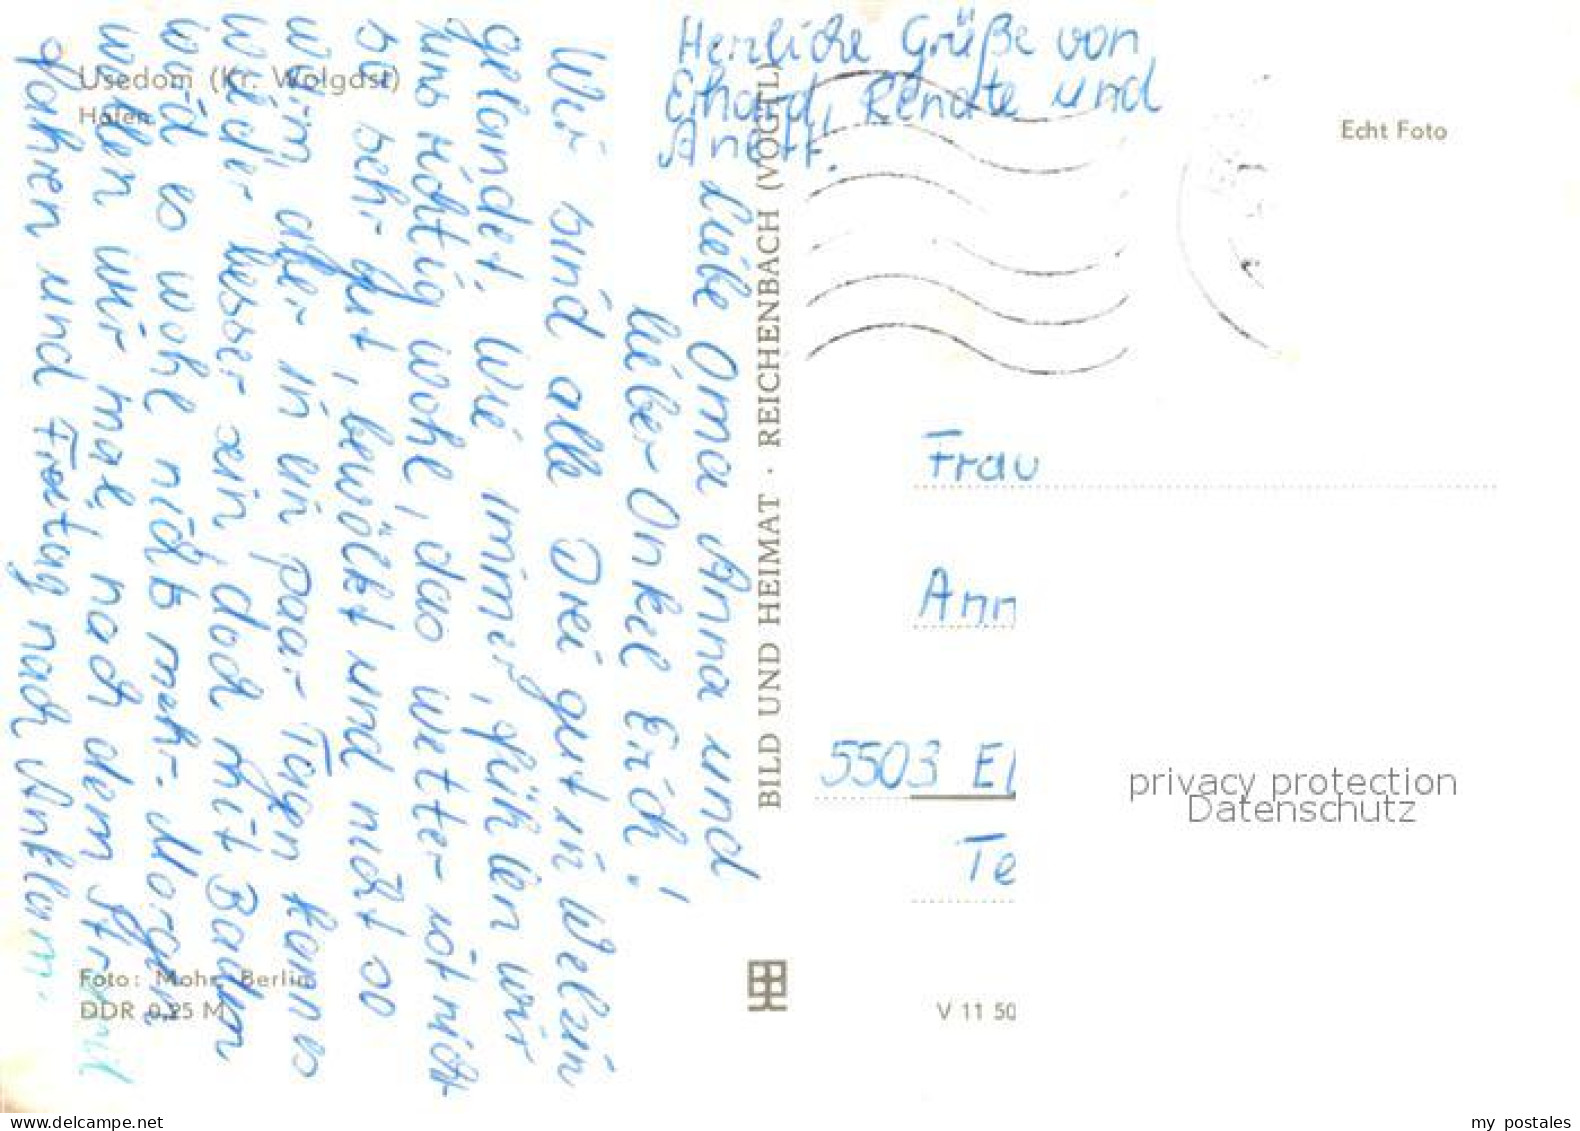 Usedom (Kr. Wolgast)
Hafen
Herzliche Grüße von
Erhard, Renate und
Anett.
Echt Foto
Liebe Oma Anna und
lieber Onkel Erich!
Wir sind alle Drei gut in Welzin
gelandet. Wie immer, fühlen wir
uns richtig wohl, das Wetter ist nicht
so sehr gut, bewölkt und nicht so
warm, aber in ein paar Tagen kann es
wieder besser sein, doch mit Baden
wird es wohl nichts mehr. Morgen
wollen wir mal, nach dem Strand
fahren und Freitag nach Anklam.
BILD UND HEIMAT · REICHENBACH (VOGTL)
Frau
Ann
5503 El
Te
privacy protection
Datenschutz
Foto: Mohr, Berlin
DDR 0,25 M
V 11 50
www.delcampe.net
my_postales